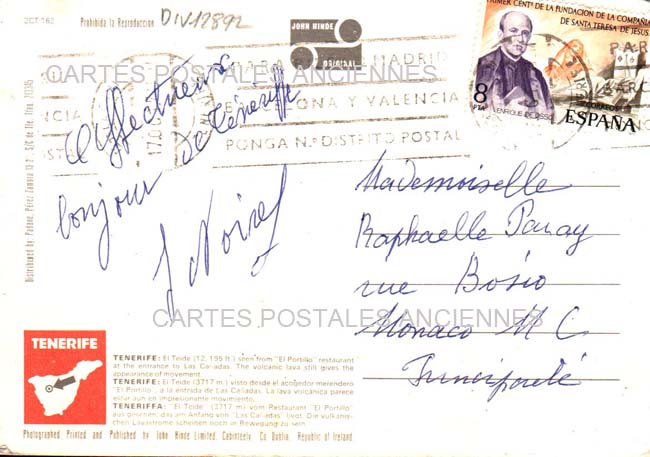 2CT 162
Prohibida la Reproduccion
DIV12892
JOHN HINDE
ORIGINAL
PRIMER CENTº DE LA FUNDACION DE LA COMPAÑIA
DE SANTA TERESA DE JESUS
8
PTA
ENRIQUE DE OSSO
CORREOS
ESPAÑA
MADRID
Y VALENCIA
PONGA N.º DISTRITO POSTAL
PARA
BARC
CARTES POSTALES ANCIENNES
Affectueux
bonjour de Ténériffe
J Noirel
Mademoiselle
Raphaelle Panay
rue Bosio
Monaco M C
Principauté
CARTES POSTALES ANCIENNES
Distributed by
TENERIFE
TENERIFE: El Teide (12, 195 ft.) seen from "El Portillo" restaurant
at the entrance to Las Cañadas. The volcanic lava still gives the
appearance of movement.
TENERIFE: El Teide (3717 m.) visto desde el acogedor merendero
"El Portillo", a la entrada de Las Cañadas. La lava volcánica parece
estar aun en impresionante movimiento.
TENERIFFA: "El Teide" (3717 m) vom Restaurant "El Portillo"
aus gesehen, das am Anfang von "Las Cañadas" liegt. Die vulkani-
chen Lavaströme scheinen noch in Bewegung zu sein.
Photographed Printed and Published by John Hinde Limited, Cabinteely, Co Dublin, Republic of Ireland